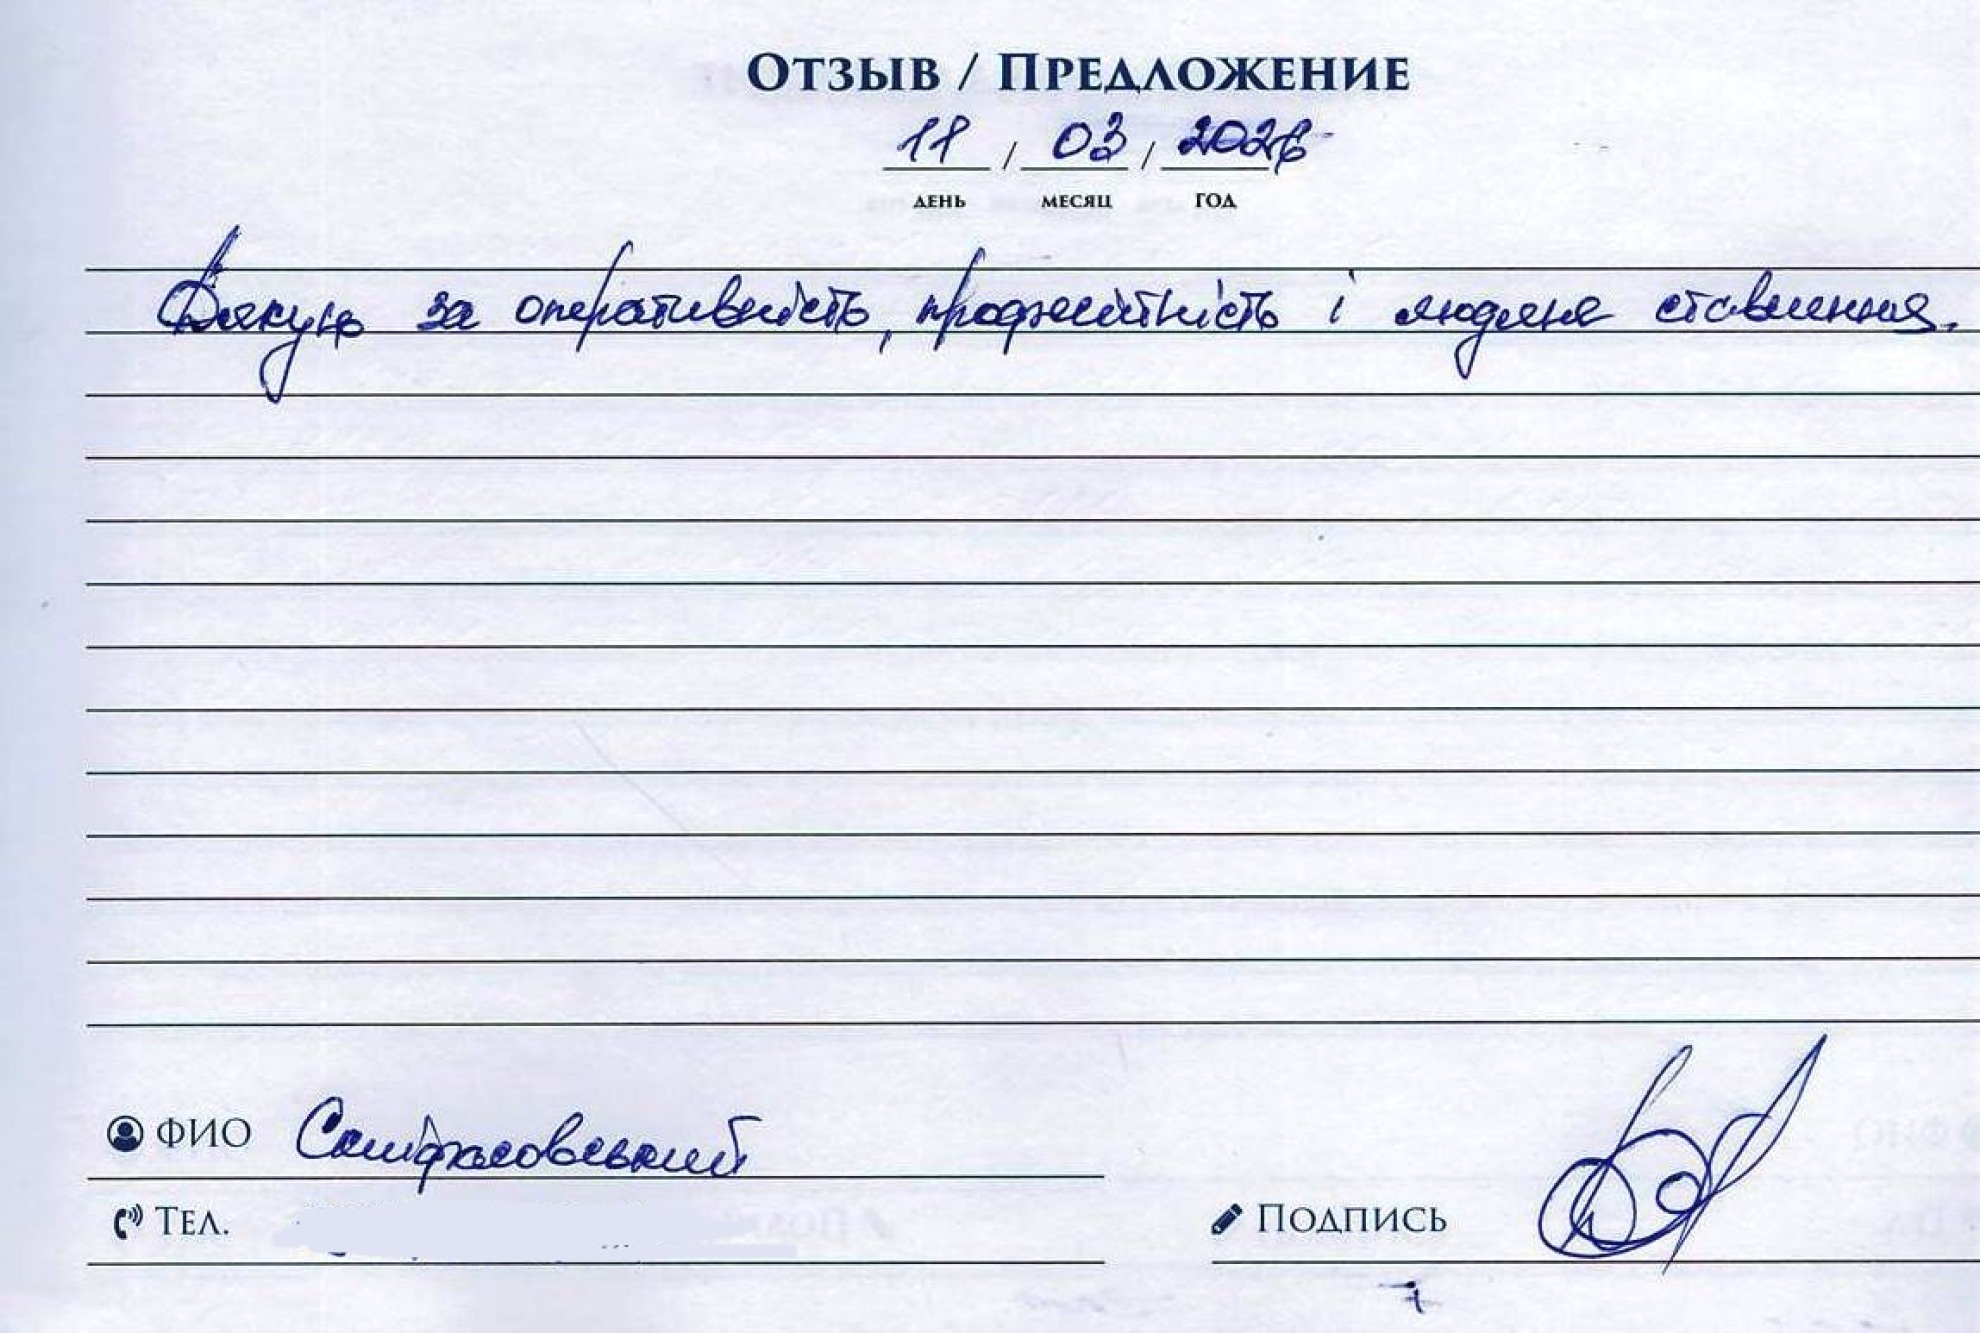 Отзыв / Предложение
11 / 03 / 2026
день месяц год
Дякую за оперативність, професійність і людяне ставлення.
ФИО
Тел.
Подпись